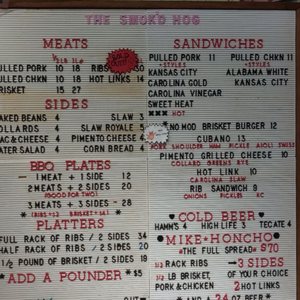 THE SMOK'D HOG
MEATS
1/2 LB 1LB
PULLED PORK 10 18 RIBS 30
PULLED CHKN 10 18 HOT LINKS 14
BRISKET 15 27
SOLD OUT!
SIDES
BAKED BEANS 4 SLAW 3
COLLARDS 4 SLAW ROYALE 4
MAC&CHEESE 4 PIMENTO CHEESE
TATER SALAD 4 CORN BREAD 4
BBQ PLATES
1 MEAT + 1 SIDE 12
2 MEATS + 2 SIDES 20
(GOOD FOR TWO)
(RIBS+2 BRISKET+1)
PLATTERS
FULL RACK OF RIBS / 2 SIDES 34
HALF OF RIBS / 2 SIDES 20
1½ POUND OF BRISKET / 2 SIDES 19
*ADD A POUNDER *$5
SANDWICHES
PULLED PORK 11 PULLED CHKN 11
+STYLES +STYLES
KANSAS CITY ALABAMA WHITE
CAROLINA GOLD KANSAS CITY
CAROLINA VINEGAR
SWEET HEAT
*** HOT
NO MOD BRISKET BURGER 12
CUBANO 13
PORK SHOULDER HAM PICKLE AIOLI SWISS
PIMENTO GRILLED CHEESE 10
COLLARD GREENS RYE
HOT LINK 10
CAROLINA SLAW
RIB SANDWICH 9
ONIONS PICKLES RC
*COLD BEER*
HAMM'S 4 HIGH LIFE 3 TECATE 4
*MIKE*HONCHO*
~THE FULL SPREAD $70
1/2 RACK RIBS —3 SIDES
1/2 LB BRISKET OF YOUR CHOICE
PORK & CHICKEN 2 HOT LINKS
* AND A 24 OZ BEER *